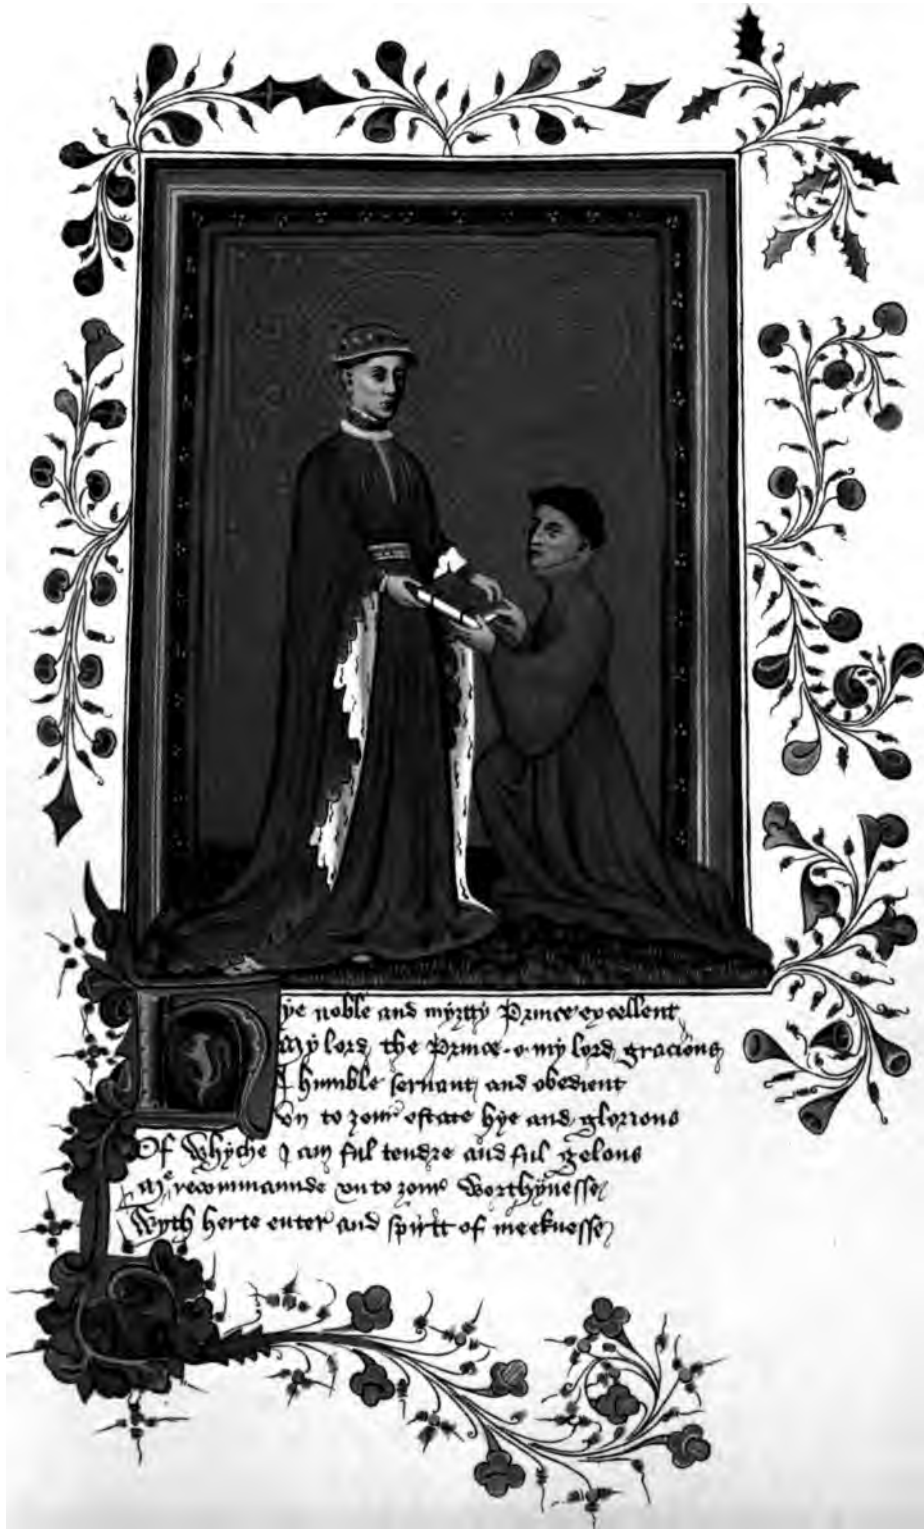 Hye noble and myztty Prince excellent
My lord the Prince .o. my lord gracious
I humble servant and obedient
Vn to zour estate hye and glorious
Of Whyche I am ful tendre and ful gelous
Me recommaunde vnto zour Worthynesse
Wyth herte enter and spirit of meeknesse